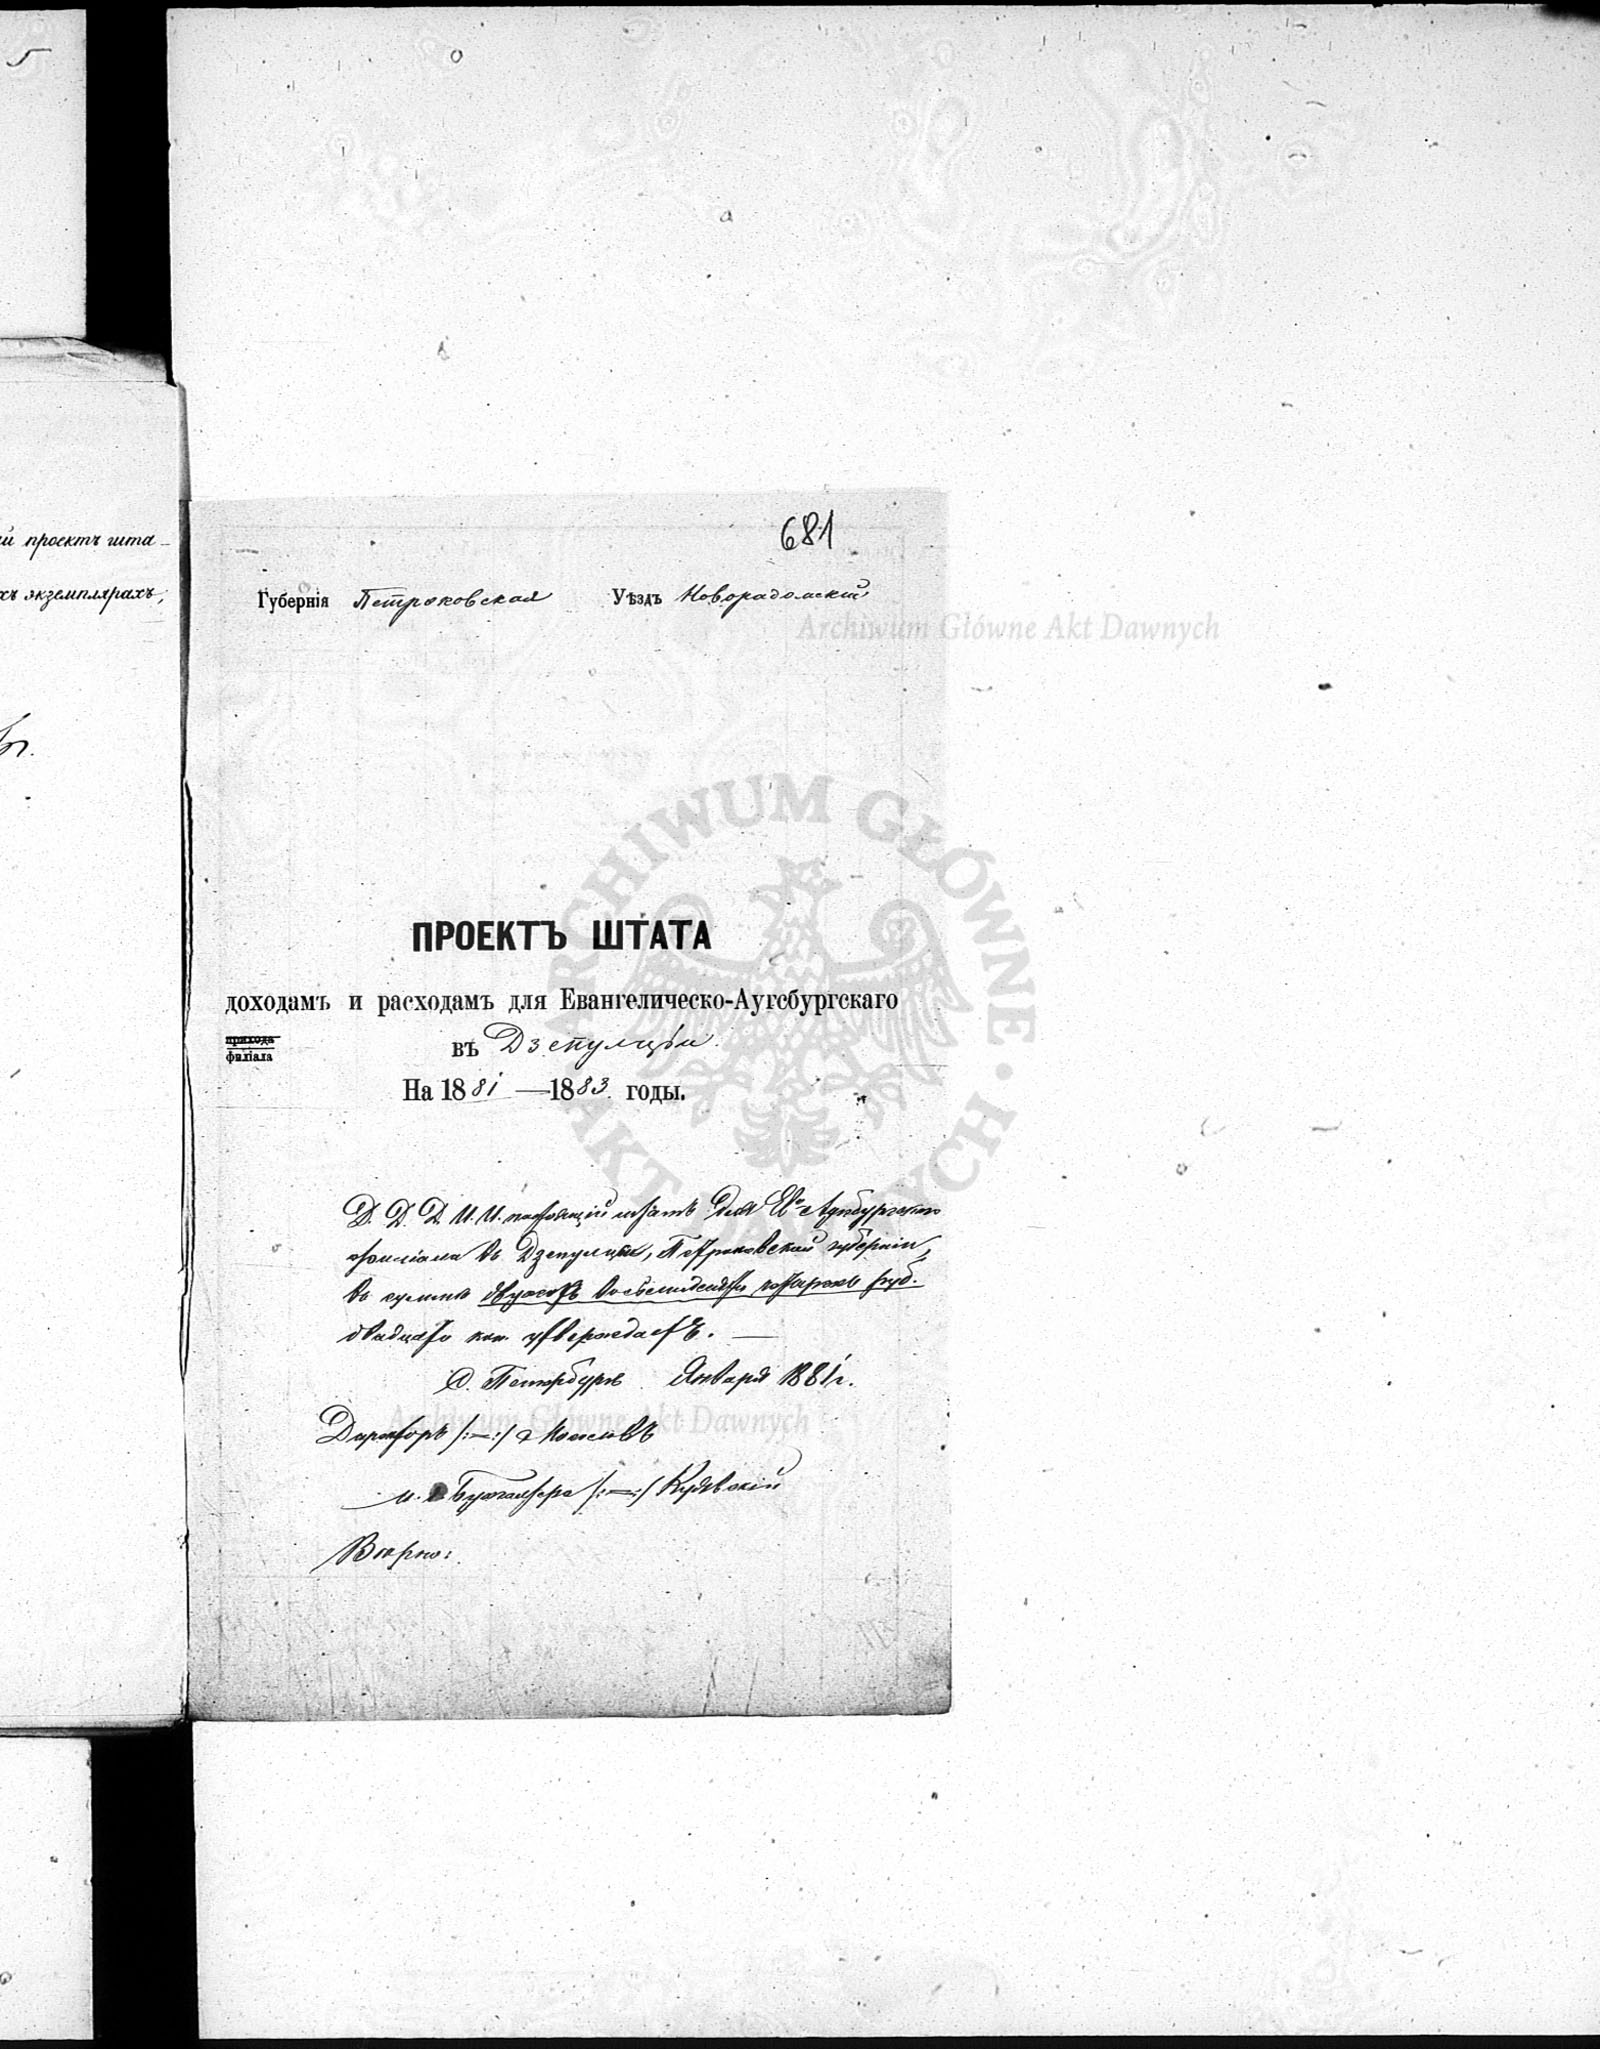 й проектъ шта-
хъ экземплярахъ,
681
Губернія Петроковская Уѣздъ Новорадомскій
ПРОЕКТЪ ШТАТА
доходамъ и расходамъ для Евангелическо-Аугсбургскаго
прихода
филіала
въ Дзепулцы
На 1881—1883 годы.
Д. Д. Д. И. И. настоящій штатъ для Ев°-Аугсбургскаго
филіала въ Дзепулцы, Петроковской губерніи,
въ суммѣ двухсотъ восьмидесяти четырехъ руб.
двадцати коп. утверждаетъ.
С. Петербургъ Января 1881 г.
Директоръ /:—:/ Мосоловъ
и. д. Бухгалтера /:—:/ Кудявскій
Вѣрно:
Archiwum Główne Akt Dawnych
ARCHIWUM GŁÓWNE AKT DAWNYCH
Archiwum Główne Akt Dawnych